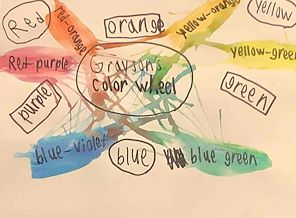 Red
red-orange
orange
yellow-orange
yellow
Red-purple
Grayson's
color wheel
yellow-green
purple
green
blue-violet
blue
blue green